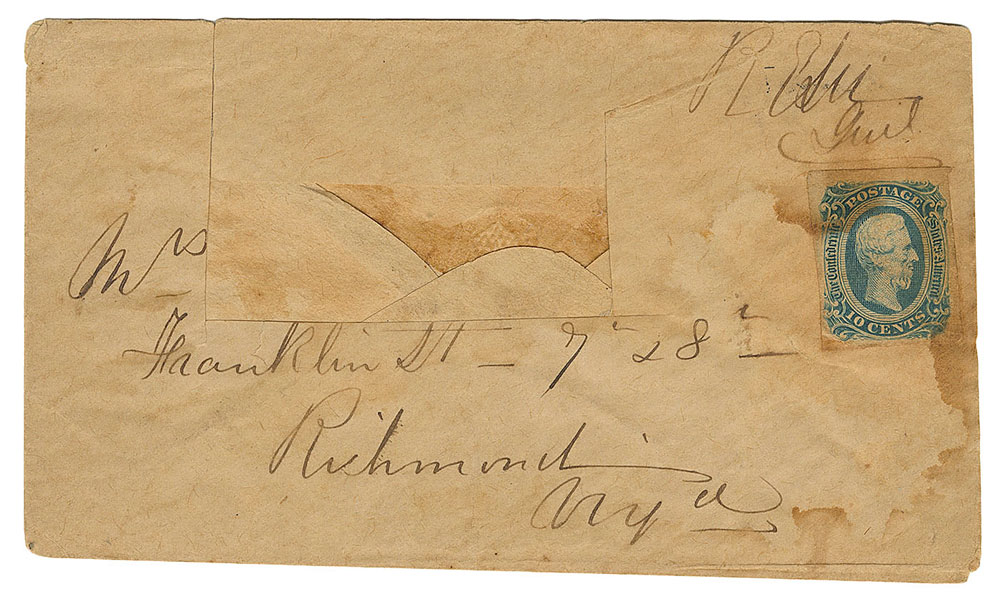 R E Lee
Genl
POSTAGE
The Confederate States of America
10 CENTS
Mrs
Franklin St — 7 & 8th
Richmond